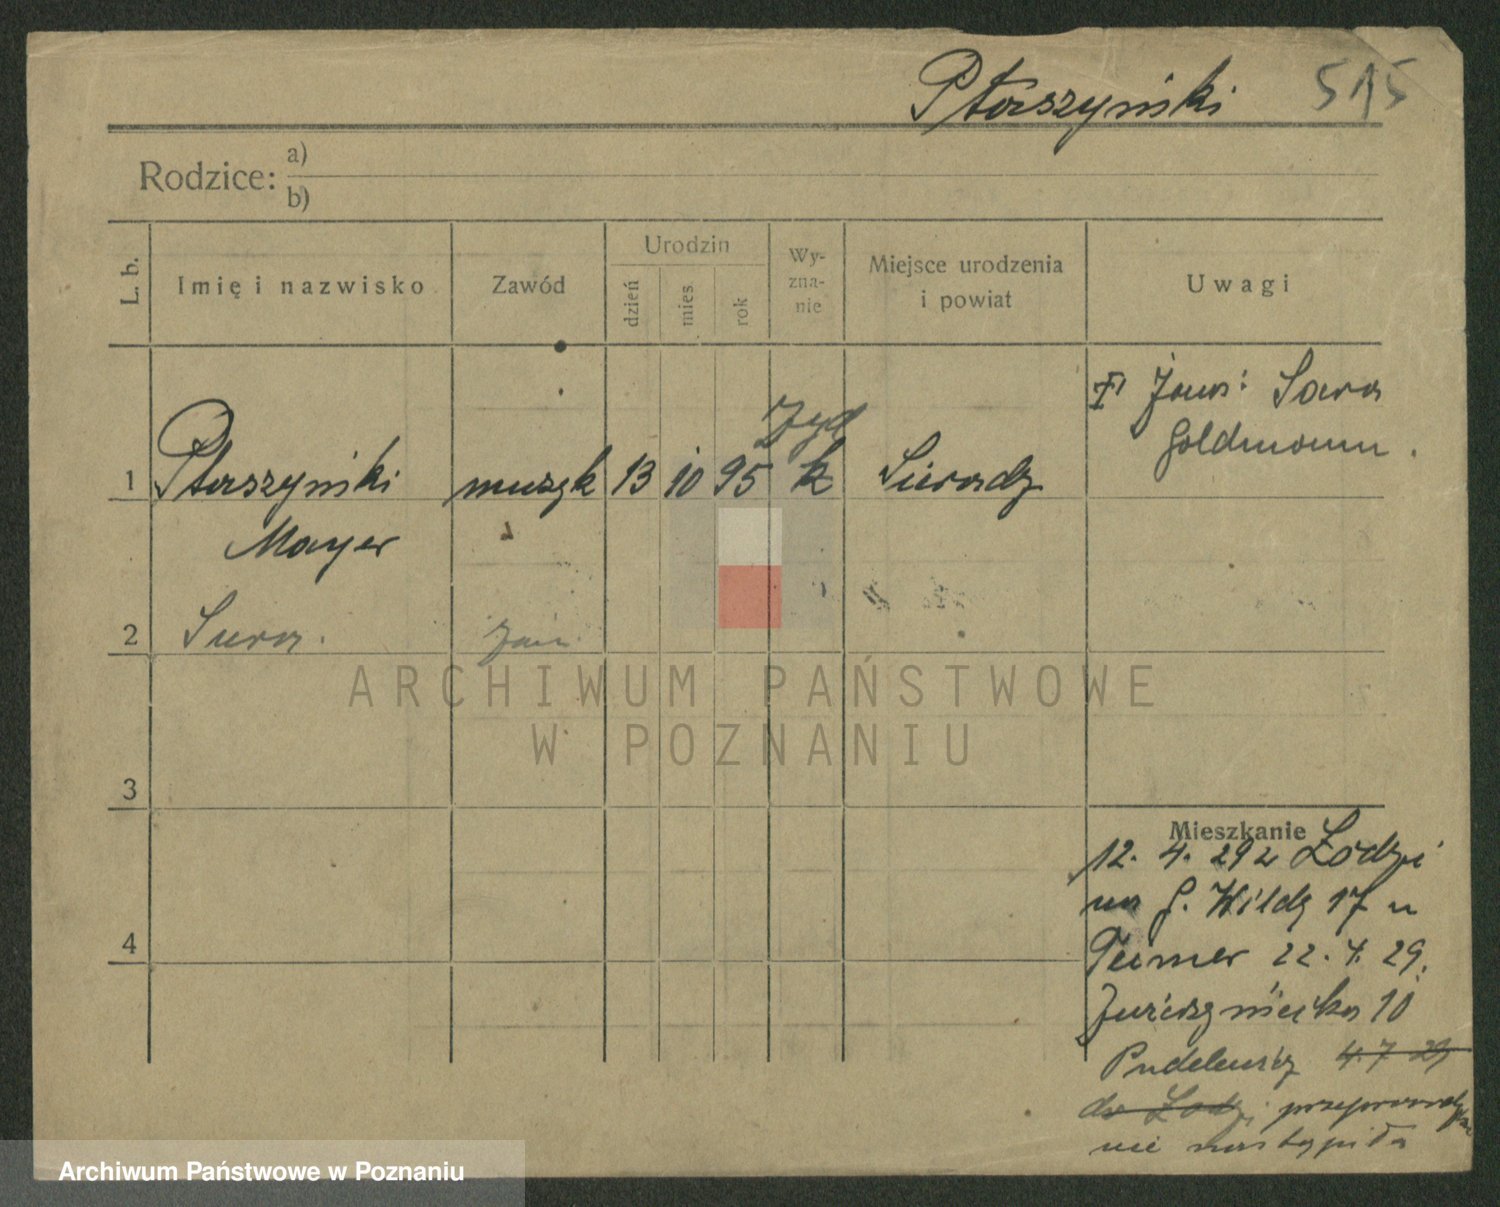 Ptaszyński 515
Rodzice: a)
b)
L. b.
Imię i nazwisko
Zawód
Urodzin
dzień
mies
rok
Wy-
zna-
nie
Miejsce urodzenia
i powiat
Uwagi
Żona: Sara
Goldmann.
Żyd
1 Ptaszyński muzyk 13 10 95 k Sieradz
Mayer
2 Sura.
3
4
Mieszkanie
12. 4. 29 z Łodzi
na G. Wildę 17 u
22. 4. 29.
10
4. 7. 29
do Łodzi
nie nastąpiła
ARCHIWUM PAŃSTWOWE
W POZNANIU
Archiwum Państwowe w Poznaniu